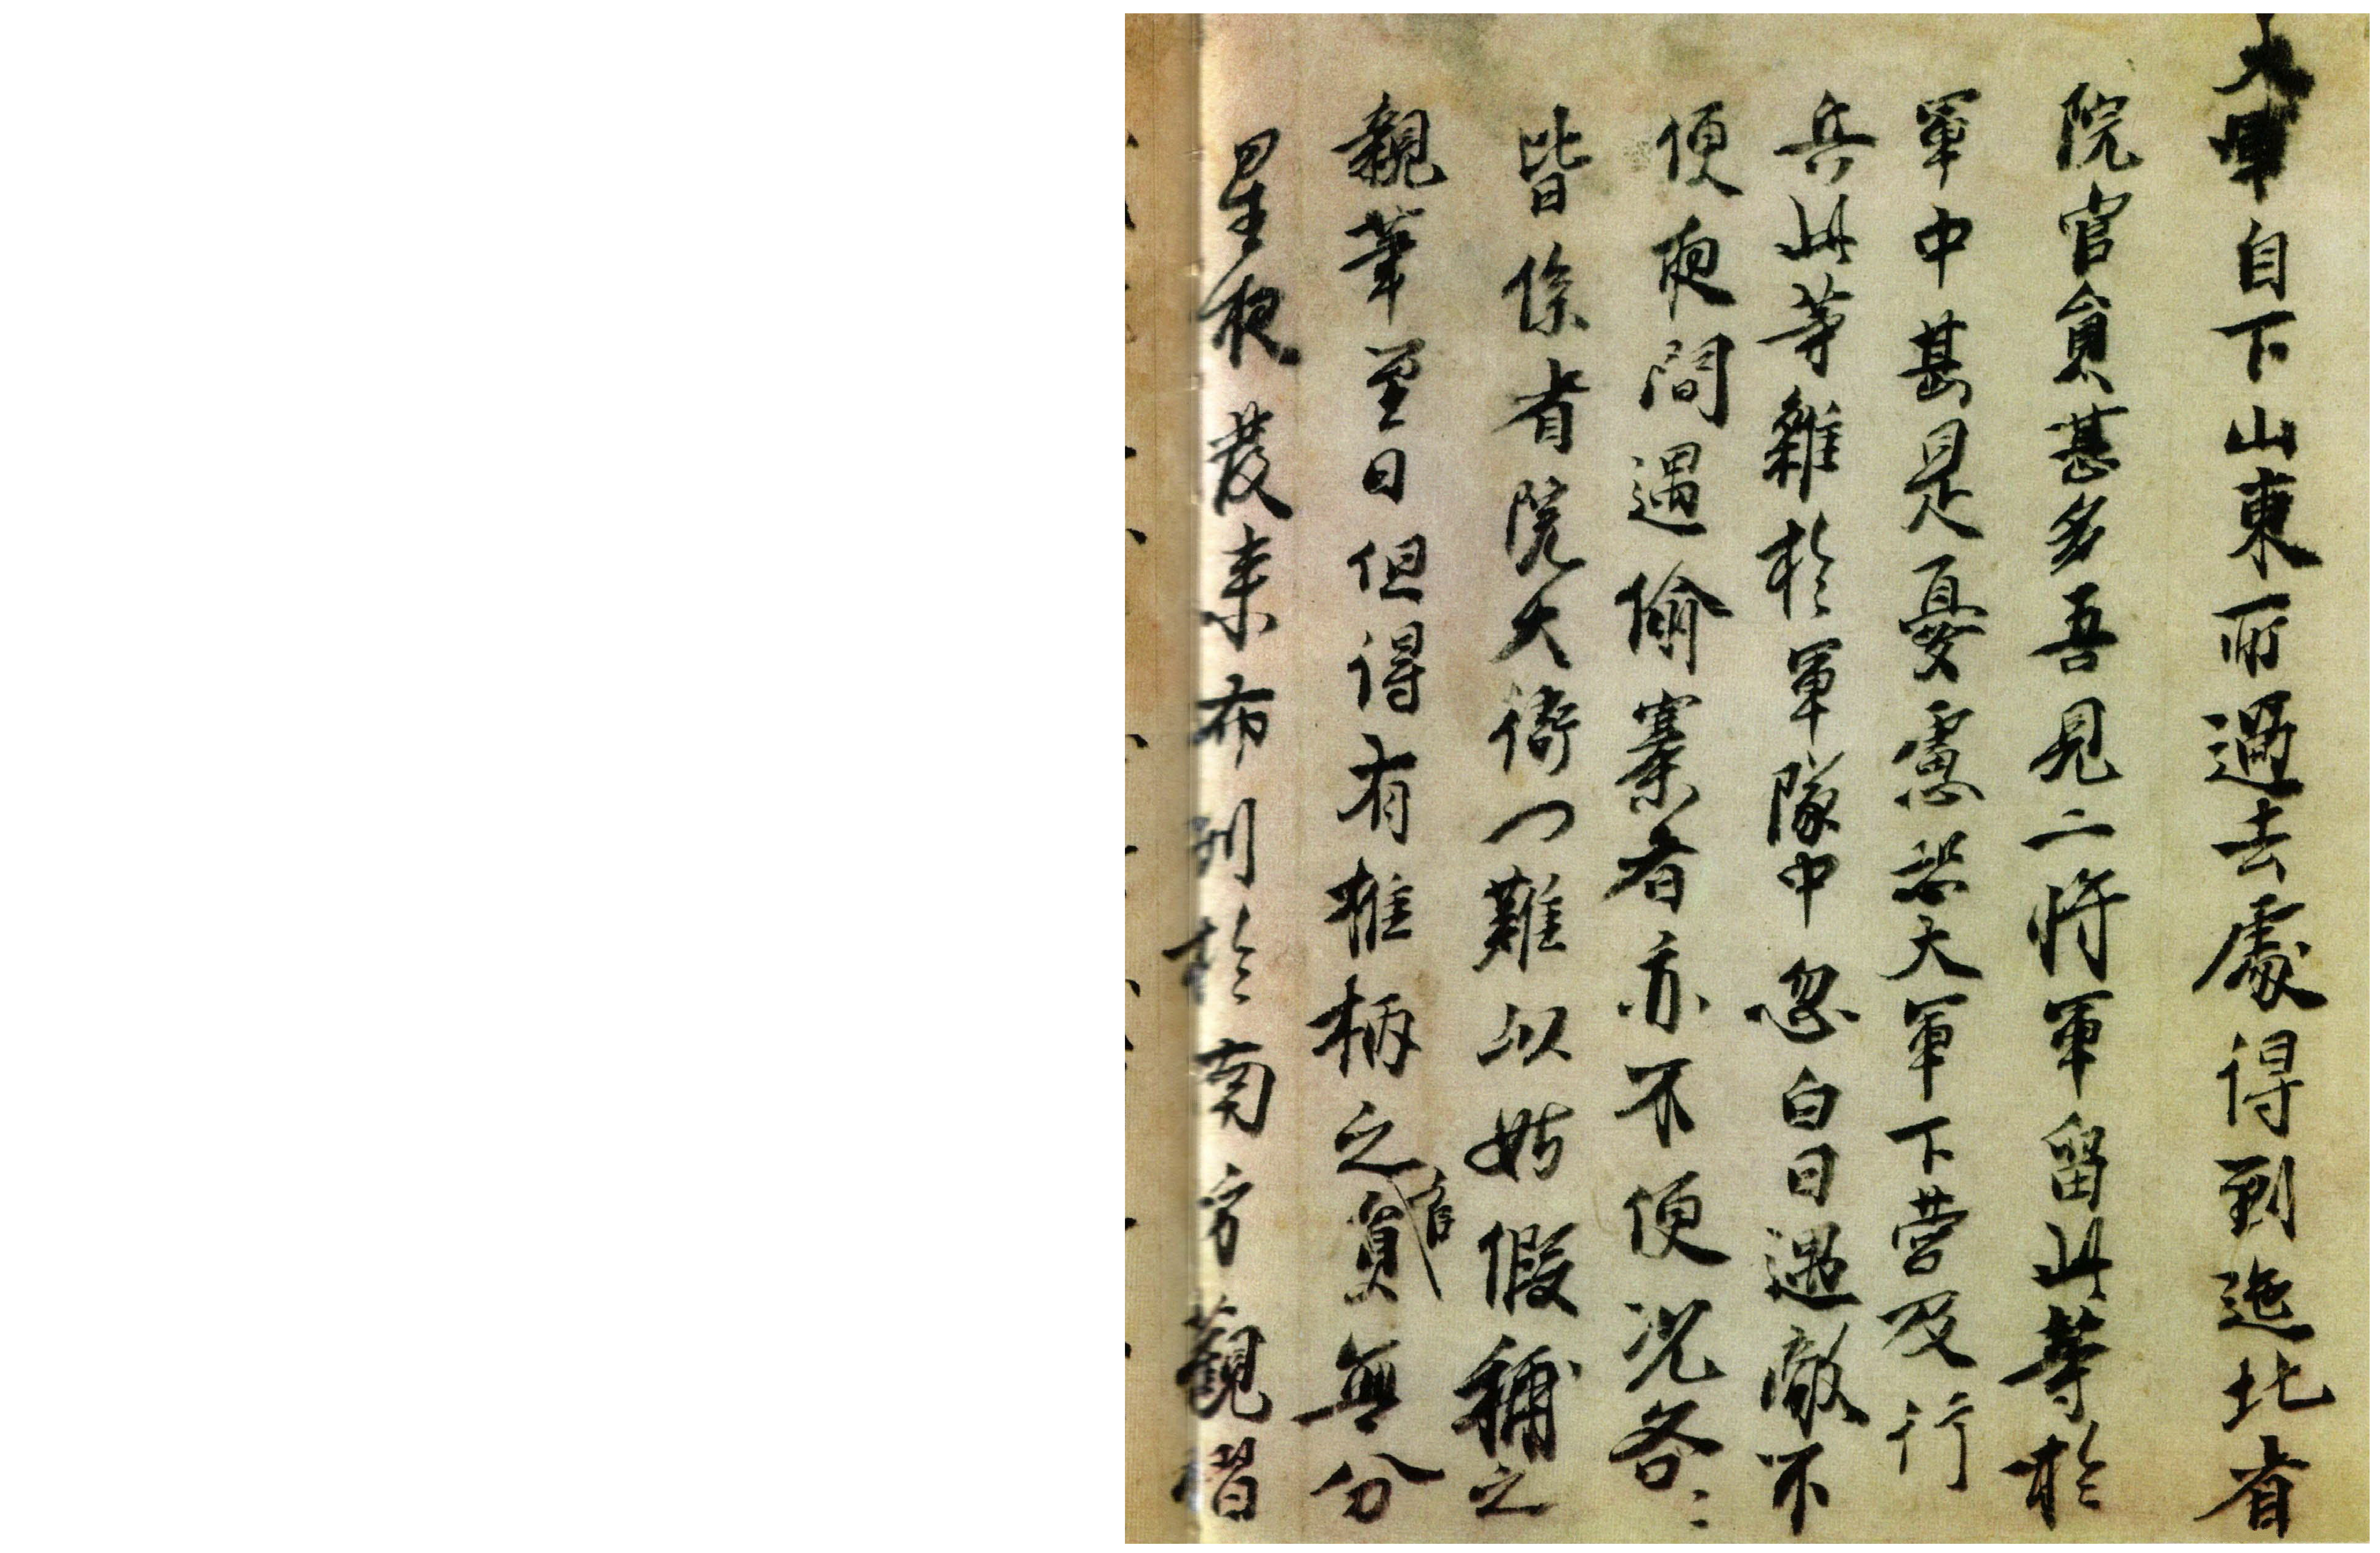 大軍自下山東所過去處得到迤北省
院官員甚多吾見二將軍留此等於
軍中甚是憂慮恐大軍下營及行
兵此等雜於軍隊中忽白日遇敵不
便夜間遇偷寨者亦不便況各〻
皆係省院大衙門難以姑假補之
親筆至日但得有椎柄之官員無分
星夜發來布列於南方觀習